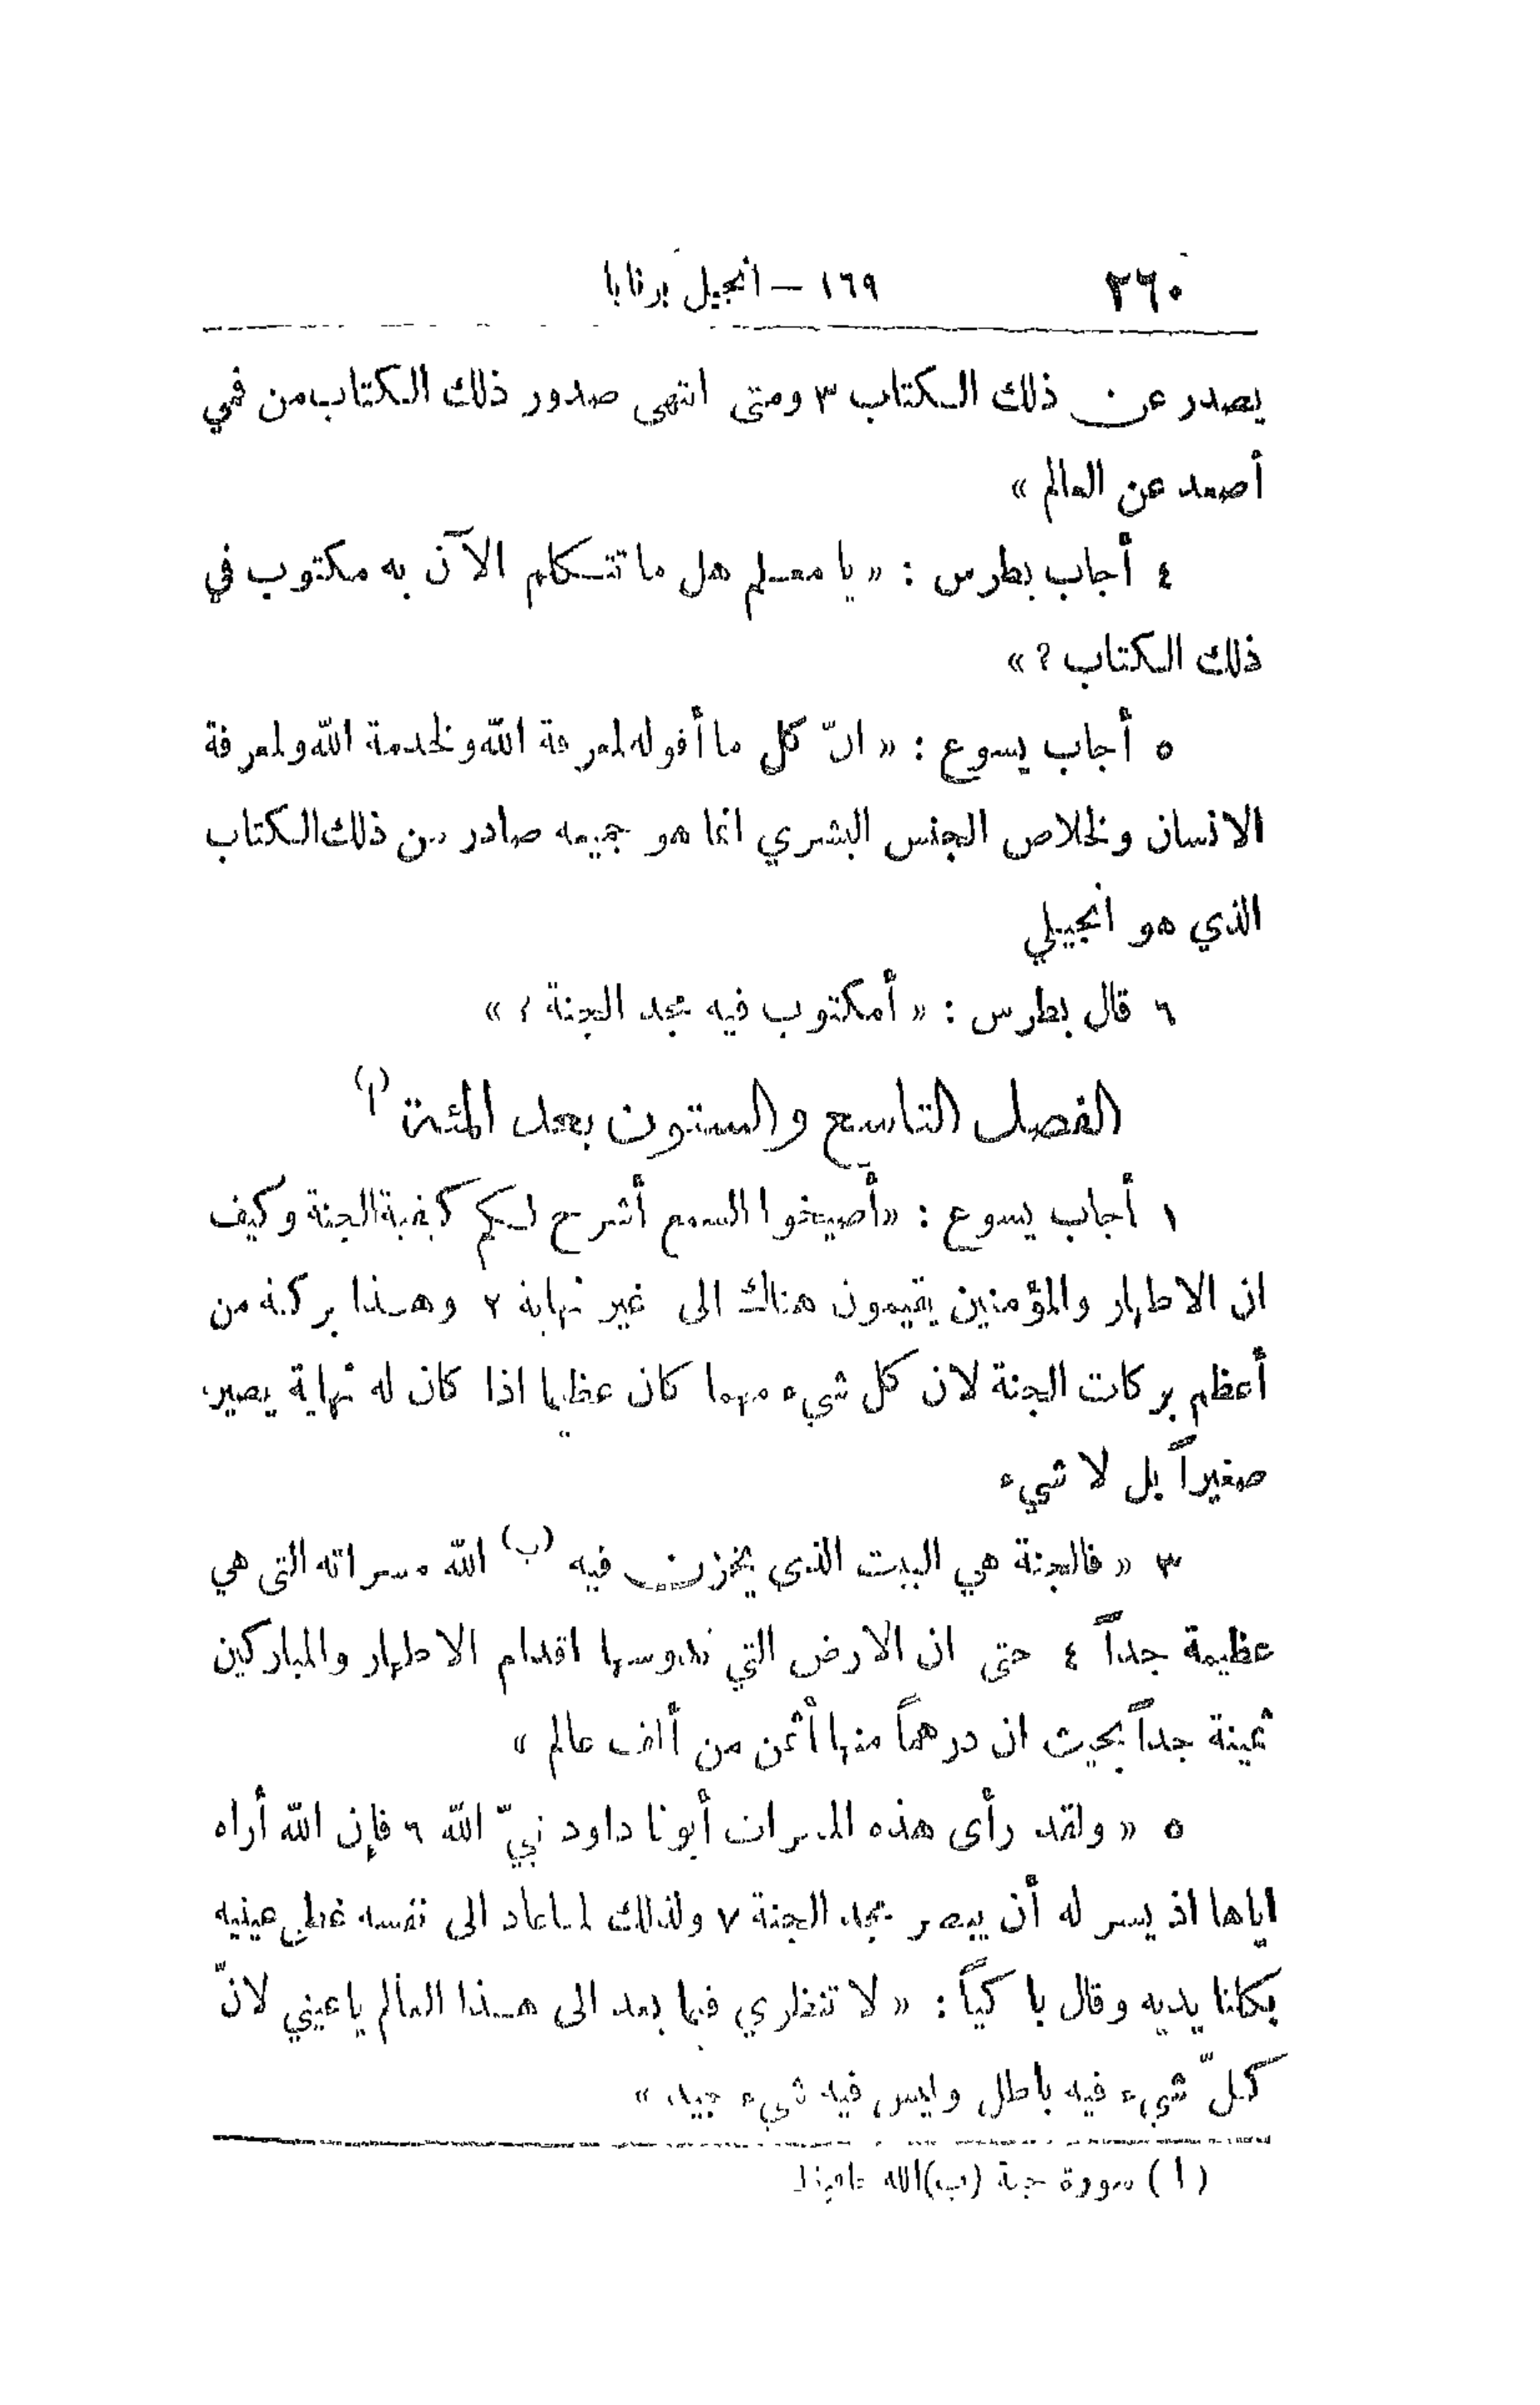 ٢٦٠ ١٦٩ — انجيل برنابا
يصدر عن ذلك الكتاب ٣ ومتى انتهى صدور ذلك الكتاب من فمي
أصعد عن العالم »
٤ أجاب بطرس : « يا معلم هل ما تتكلم الآن به مكتوب في
ذلك الكتاب ? »
٥ أجاب يسوع : « انّ كل ما أقوله لمعرفة الله ولخدمة الله ولمعرفة
الانسان ولخلاص الجنس البشري انما هو جميعه صادر من ذلك الكتاب
الذي هو انجيلي
٦ قال بطرس : « أمكتوب فيه مجد الجنة ? »
الفصل التاسع والستون بعد المئة (ا)
١ أجاب يسوع : « أصيخوا السمع أشرح لكم كيفية الجنة وكيف
ان الاطهار والمؤمنين يقيمون هناك الى غير نهاية ٢ وهذا بركة من
أعظم بركات الجنة لان كل شيء مهما كان عظيما اذا كان له نهاية يصير
صغيراً بل لا شيء
٣ « فالجنة هي البيت الذي يخزن فيه (ب) الله مسراته التي هي
عظيمة جداً ٤ حتى ان الارض التي تدوسها اقدام الاطهار والمباركين
ثمينة جداً بحيث ان درهماً منها أثمن من ألف عالم »
٥ « ولقد رأى هذه المسرات أبونا داود نبيّ الله ٦ فإن الله أراه
اياها اذ يسر له أن يبصر مجد الجنة ٧ ولذلك لما عاد الى نفسه غطى عينيه
بكلتا يديه وقال باكياً : « لا تنظري فيما بعد الى هذا العالم يا عيني لانّ
كلّ شيء فيه باطل وليس فيه شيء جيد »
(ا) سورة جنة (ب) الله حافظ